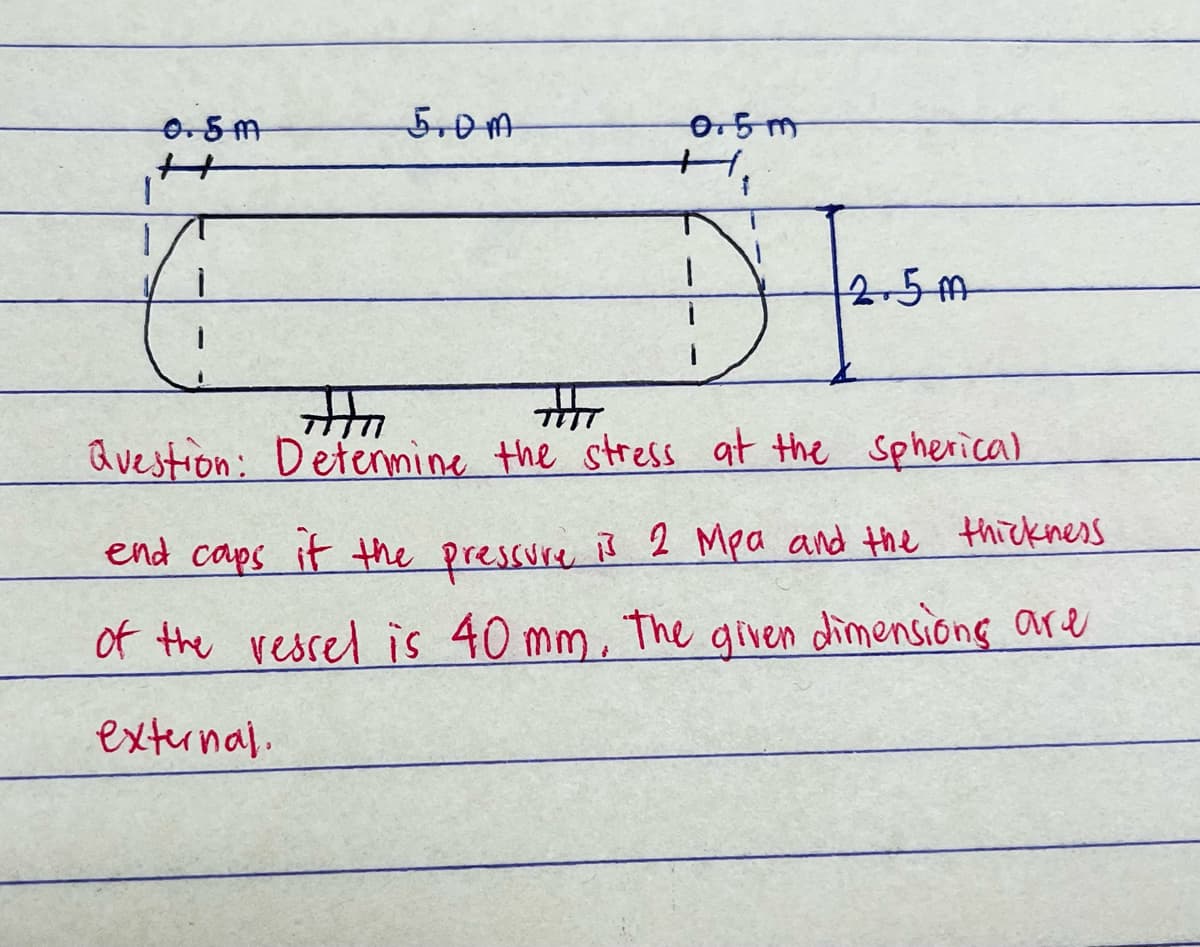 0.5 m 5.0 m 0.5 m
2.5 m
Question: Determine the stress at the spherical
end caps if the pressure is 2 Mpa and the thickness
of the vessel is 40 mm. The given dimensions are
external.